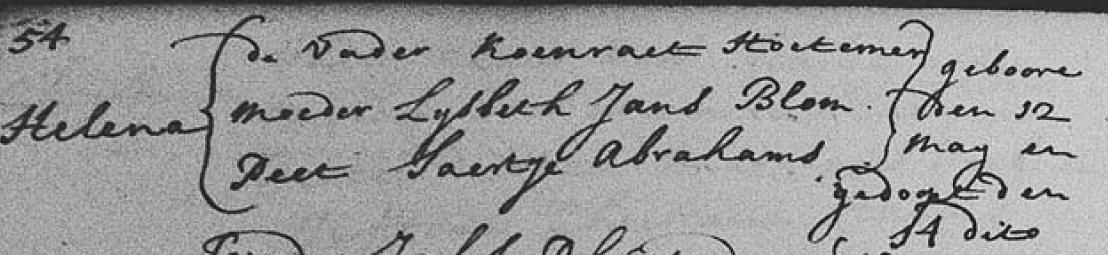 54
Helena
de Vader Koenraet Stoetemer
moeder Lysbeth Jans Blom.
Peet Saertje Abrahams
geboore
den 12
may en
gedoopt den
14 dito